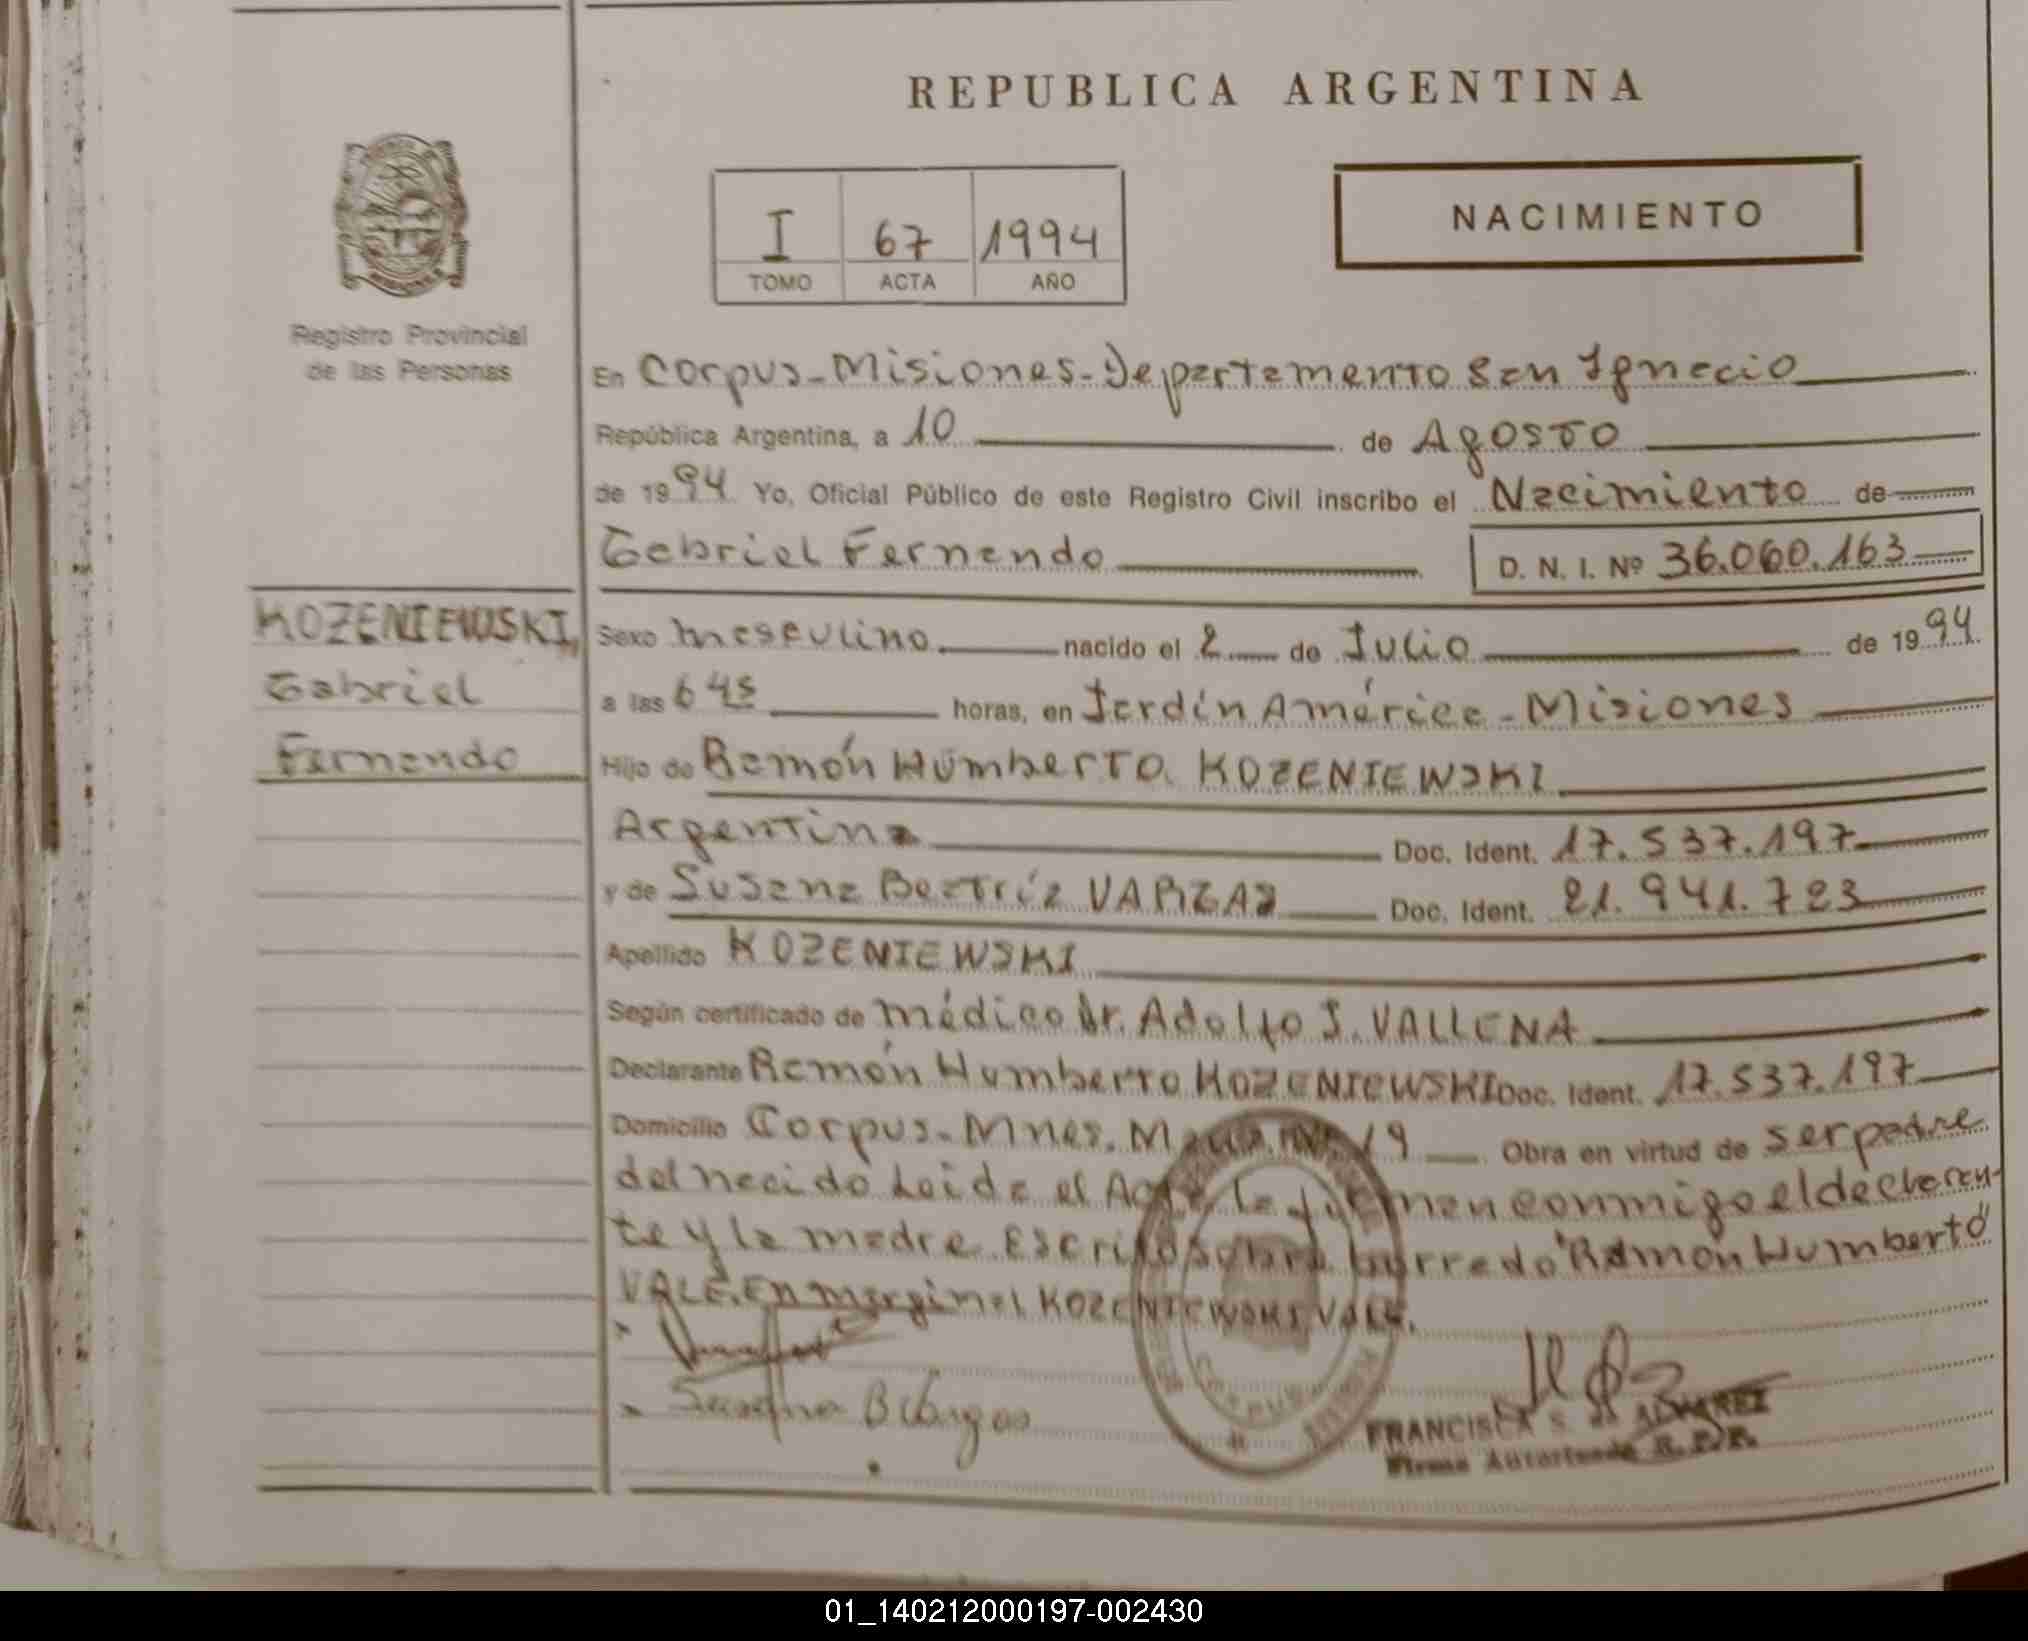 REPUBLICA ARGENTINA
NACIMIENTO
I 67 1994
TOMO ACTA AÑO
Registro Provincial
de las Personas
En Corpus-Misiones-Departamento San Ignacio
República Argentina, a 10 de Agosto
de 1994 Yo, Oficial Público de este Registro Civil inscribo el Nacimiento de
Gabriel Fernando D. N. I. Nº 36.060.163
KOZENIEWSKI,
Gabriel
Fernando
Sexo masculino nacido el 2 de Julio de 1994
a las 6 45 horas, en Jardín América-Misiones
Hijo de Ramón Humberto KOZENIEWSKI
Argentina Doc. Ident. 17.537.197
y de Susana Beatríz VARGAS Doc. Ident. 21.941.723
Apellido KOZENIEWSKI
Según certificado de médico Dr. Adolfo J. VALLENA
Declarante Ramón Humberto KOZENIEWSKI Doc. Ident. 17.537.197
Domicilio Corpus-Mnes. 19 Obra en virtud de ser padre
del nacido Leida el Acta la firman conmigo el declaran-
te y la madre. Escrito sobre borrado "Ramón Humberto"
VALE. En marginal KOZENIEWSKI VALE.
Susana B Vargas
FRANCISCA S. de ALVAREZ
Firma Autorizada R.P.P.
01_140212000197-002430